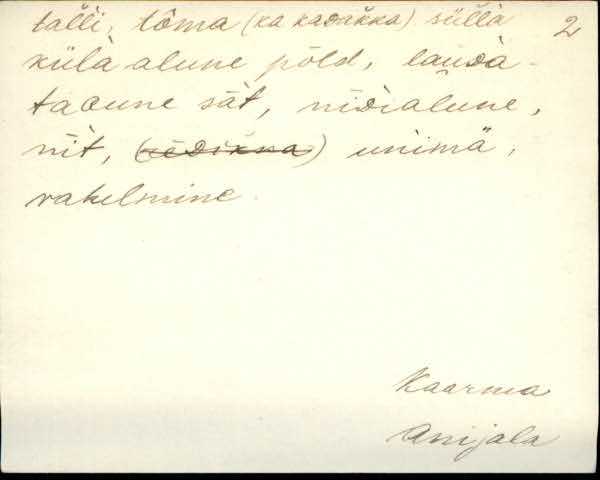 talli, tôma (ka kadakka) sülla 2
külà alune põld, laùdà-
tacune sàt, nìdialune,
nìt, () unimä,
vahelmine.
Kaarma
Anijala